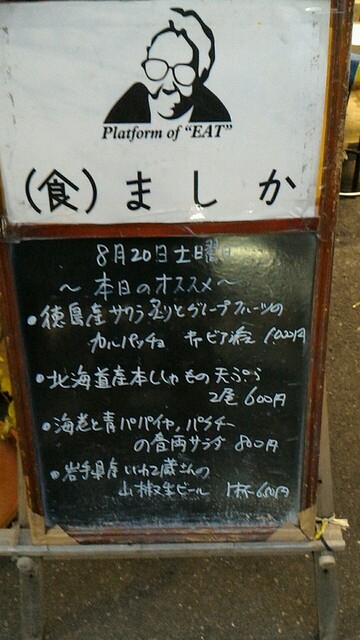 Platform of "EAT"
(食) ましか
8月20日土曜日
〜 本日のオススメ 〜
• 徳島産サワラ炙りとグレープフルーツの
カルパッチョ キャビア添え
• 北海道産本ししゃもの天ぷら
2尾 600円
• 海老と青パパイヤ、パクチー
の サラダ 800円
• 岩手県産 いわて蔵さんの
山椒生ビール 1杯 650円